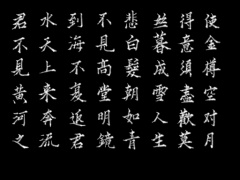 君不見黃河之
水天上來奔流
到海不复返君
不見高堂明鏡
悲白髮朝如青
丝暮成雪人生
得意須盡歡莫
使金樽空对月